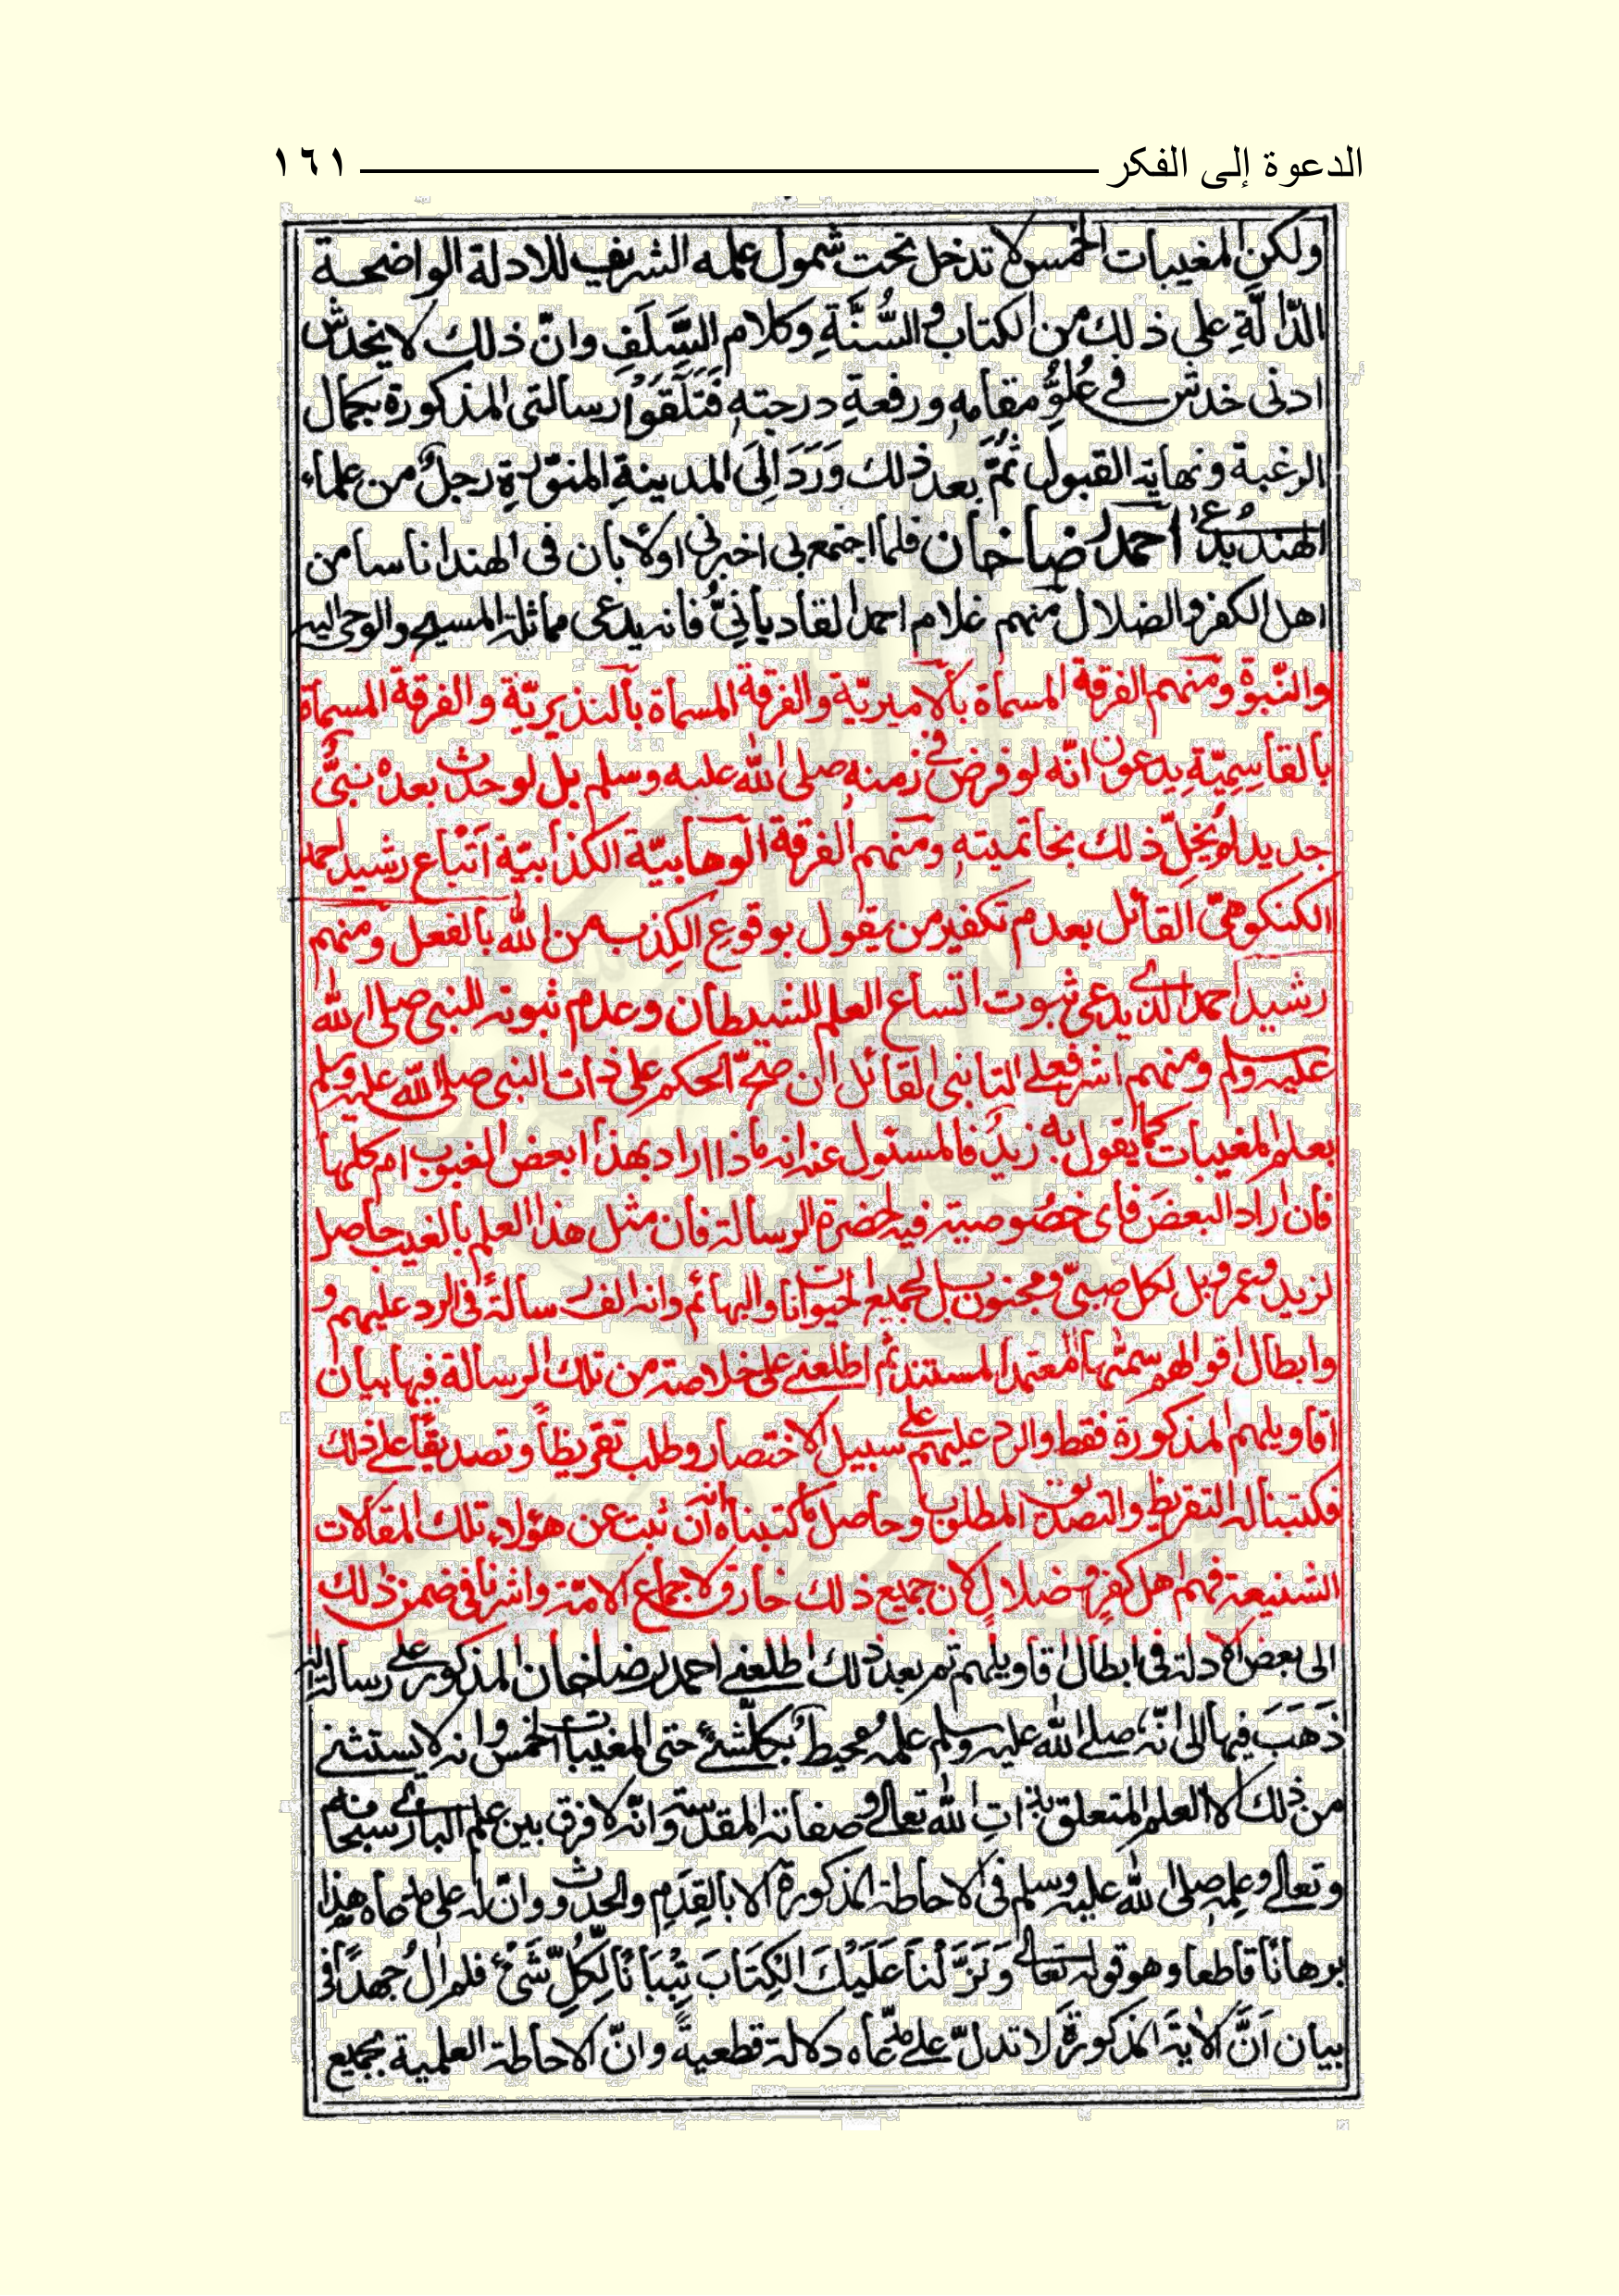 الدعوة إلى الفكر ١٦١
ولكن المغيبات الخمس لا تدخل تحت شمول علمه الشريف للادلة الواضحة
الدّالّةِ على ذلك من الكتاب والسُّنَّةِ وكلام السَّلَفِ وانّ ذلك لا يخدش
ادنى خدش في عُلُوِّ مقامِهِ ورفعةِ درجتهِ فَتَلَقَّوْا رسالتى المذكورة بكمال
الرغبة ونهاية القبول ثُمَّ بعد ذلك وَرَدَ اِلَى المدينةِ المنوّرةِ رجلٌ من علماء
الهند يُدْعٰى احمد رضاخان فلما اجتمع بى اخبرنى اولا بأن فى الهند اناسا من
اهل الكفر والضلال منهم غلام احمد القاديأنىّ فانه يدعى مماثلة المسيح والوحى اليه
والنّبوة ومنهم الفرقة المسمأة بألاميريّة والفرقة المسمأة بألنذيريّة والفرقة المسمأة
بألقأسِمِيّةِ يدعون انّه لو فرض فى زمنهِ صلى الله عليه وسلم بل لو حدث بعدهٗ نبىٌّ
جديد لم يُخِلّ ذلك بخاتميتهِ ومنهم الفرقة الوهأبيّة الكذأبيّة اَتْبأع رشيد احمد
الكنكوهىّ القأئل بعدم تكفير من يقول بوقوع الكِذب من الله بألفعل ومنهم
رشيد احمد الذى يدعى ثبوت اتساع العلم للشيطان وعدم ثبوته للنبى صلى الله
عليه وسلم ومنهم اشرفعلى التأنبى القأئل ان صحّ الحكم على ذات النبى صلى الله عليه وسلم
بعلم المغيبات كما يقول به زيدٌ فالمسئول عنه انه ماذا اراد بهذا ابعض الغيوب ام كلها
فان اراد البعضَ فأى خصُوصيته فيه لحضرة الرسالة فأن مثل هذا العلم بألغيب حأصل
لزيد وعمرو بل لكل صبىّ ومجنون بل لجميع الحيوانات والبهأئم وانه الف رسألة فى الرد عليهم و
وابطال اقوالهم سمّٰها المعتمد المستند ثم اطلعنى على خلاصته من تلك الرسألة فيها بيان
اقأويلهم المذكورة فقط والرد عليهم على سبيل الاختصار وطلب تقريظاً وتصديقاً على ذلك
فكتبنا له التقريظ والتصديق المطلوب وحأصل مأ كتبنأه انه ان ثبت عن هؤلاء تلك المقألات
الشنيعة فهم اهل كفر وضلال لان جميع ذلك خأرق لاجمأع الامّة واشرنا فى ضمن ذلك
الى بعض الادلة فى ابطال اقاويلهم ثم بعد ذلك اطلعنى احمد رضاخان المذكور على رسالة له
ذَهَبَ فيها الى انّه صلى الله عليه وسلم علمهُ محيطٌ بكلّ شئ حتى المغيبات الخمس وانه لا يستثنى
من ذلك الا العلم المتعلق بذات الله تعالى وصفاته المقدسة وانّه لا فرق بين علم البارى سبحانه
وتعالى وعلمه صلى الله عليه وسلم فى الاحاطة المذكورة الا بالقِدَمِ والحدوث وانّ له على مدّعاه هٰذا
برهاناً قاطعا وهو قوله تعالى وَنَزَّلْنَا عَلَيْكَ الْكِتَابَ تِبْيَانًا لِّكُلِّ شَىْءٍ فلم اٰلُ جهداً فى
بيان اَنَّ الاٰيةَ المذكورةَ لا تدلّ على مدّعاه دلالة قطعيةً وانّ الاحاطة العلمية بجميع